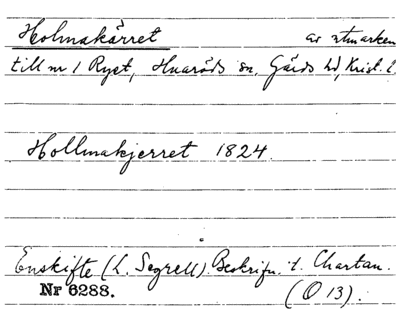 Holmakärret av utmarken
till nr 1 Ryet, Huaröds sn, Gärds hd, Krist. l.
Hollmakjerret 1824.
Enskifte (L. Segrell) Beskrifn. t. Chartan.
Nr 6288. (O 13).